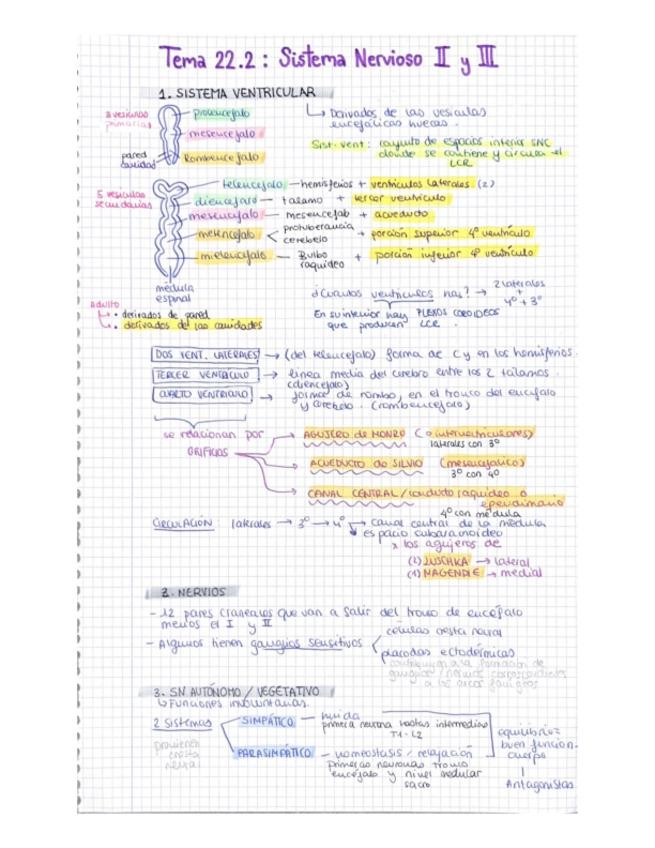 Tema 22.2 : Sistema Nervioso II y III
1. SISTEMA VENTRICULAR
3 vesículas primarias
prosencéfalo
mesencéfalo
Rombencéfalo
pared
cavidades
↳ Derivados de las vesículas
encefálicas huecas.
Sist. vent: conjunto de espacios interior SNC
donde se contiene y circula el
LCR
5 vesículas
secundarias
telencéfalo — hemisferios + ventrículos laterales (2)
diencéfalo — tálamo + tercer ventrículo
mesencéfalo — mesencéfalo + acueducto
metencéfalo < protuberancia
cerebelo + porción superior 4º ventrículo
mielencéfalo — Bulbo
raquídeo + porción inferior 4º ventrículo
médula
espinal
adulto
• derivados de pared
• derivados de las cavidades
¿Cuántos ventrículos hay? → 2 laterales
+
4º + 3º
En su interior hay PLEXOS COROIDEOS
que producen LCR.
DOS VENT. LATERALES → (del telencéfalo) forma de C y en los hemisferios.
TERCER VENTRÍCULO → línea media del cerebro entre los 2 tálamos.
(diencéfalo)
CUARTO VENTRÍCULO → forma de rombo, en el tronco del encéfalo
y cerebelo. (rombencéfalo)
se relacionan por
ORIFICIOS
AGUJERO de MONRO (o interventriculares)
laterales con 3º
ACUEDUCTO de SILVIO (mesencefálico)
3º con 4º
CANAL CENTRAL / conducto raquídeo o
ependimario
4º con médula
CIRCULACIÓN: laterales → 3º → 4º → canal central de la médula
espacio subaracnoideo
x los agujeros de
(2) LUSCHKA → lateral
(1) MAGENDIE → medial
2. NERVIOS
- 12 pares craneales que van a salir del tronco de encéfalo
menos el I y II
- Algunos tienen ganglios sensitivos < células cresta neural
placodas ectodérmicas
contribuyen a la formación de
ganglios / nervios correspondientes
a los arcos faríngeos
3. SN AUTÓNOMO / VEGETATIVO
↳ Funciones involuntarias.
2 sistemas
provienen
cresta
neural
SIMPÁTICO — huida
primera neurona hastas intermedias
T1-L2
PARASIMPÁTICO — homeostasis / relajación
primeras neuronas tronco
encéfalo y nivel medular
sacro
equilibrio =
buen función.
cuerpo
Antagonistas